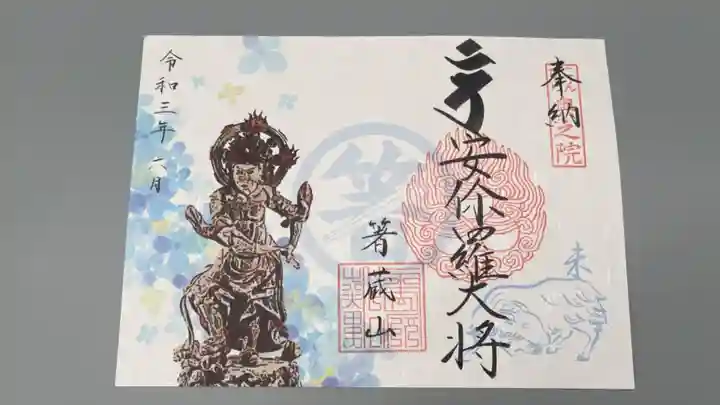 奉納
安倧羅大将
未
箸蔵山
令和三年 六月